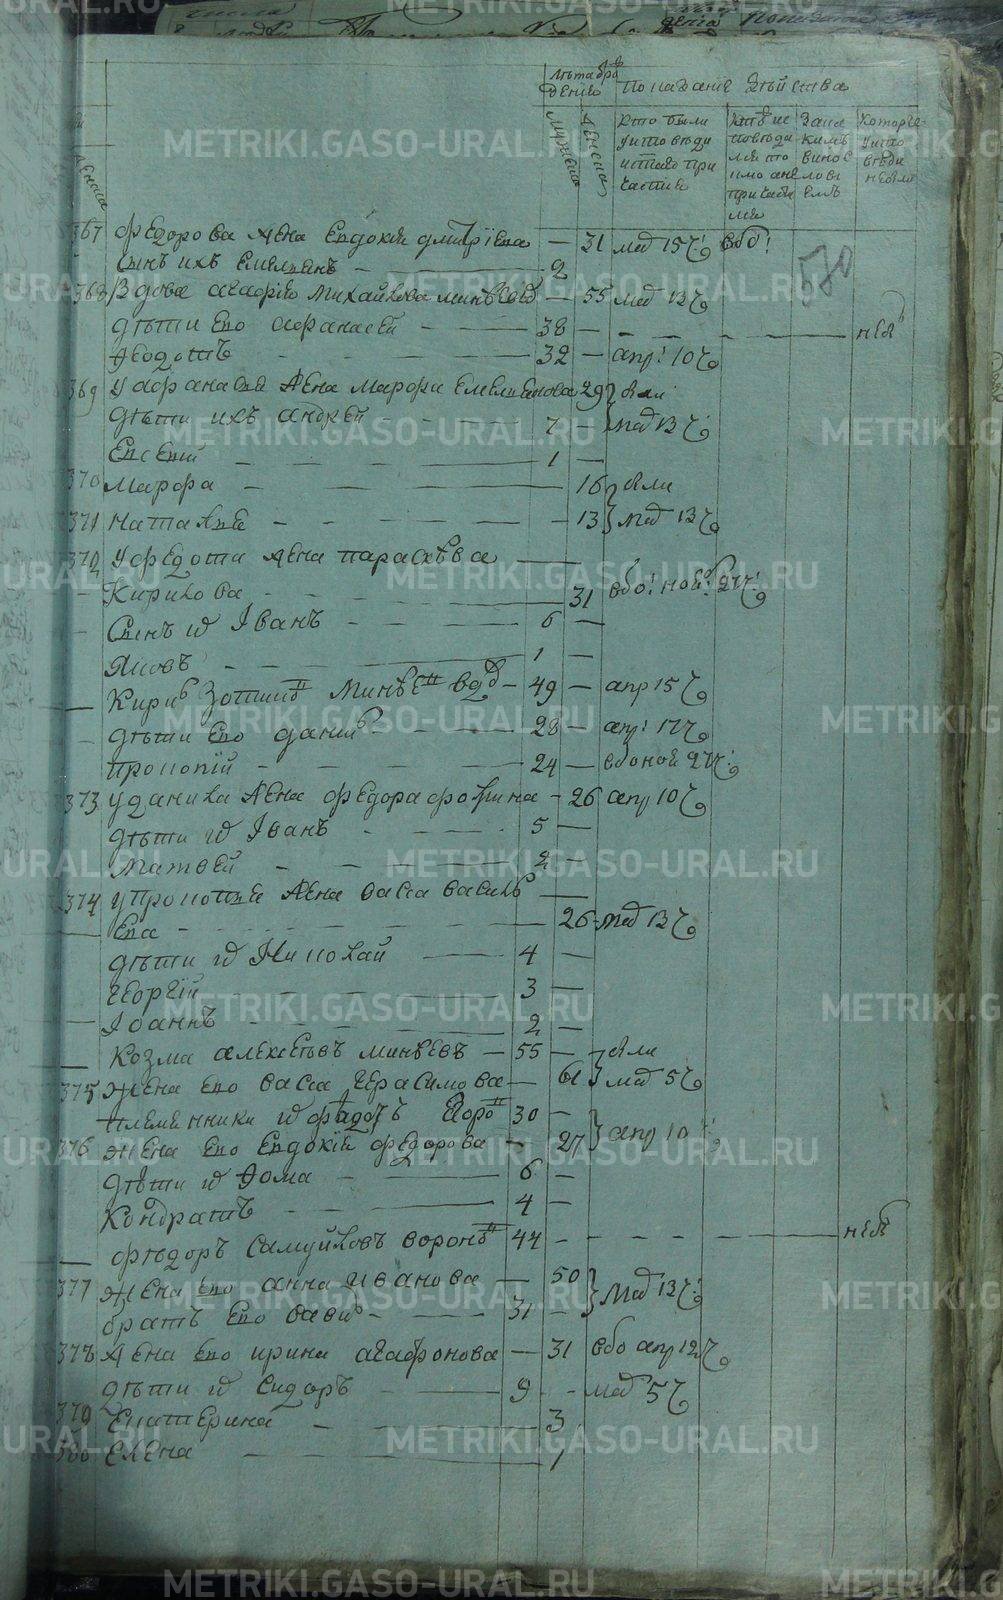 Лѣта рождения
По наданіе дѣйства
мужеска
женска
женска
кто были у исповѣди и святаго причастия
кто исповѣдалися а не причастилися
за каким виновословием
которые у исповѣди небыли
570
367 Федорова жена Евдокия Дмитрїева — 31 маѧ 15 ч: вбо:
сынъ ихъ Емелиянъ — 2
368 Вдова Агафия Михайлова Минѣевыхъ — 55 маѧ 13 ч
дѣти ево Афанасей — 38 — небыл
Федотъ — 32 — апр: 10 ч
369 У Афанасия жена Марфа Емелиянова 29 были
дѣти ихъ Андрей — 7 — маѧ 13 ч
Евсевий — 1 —
370 Марфа — 16 были
371 Наталия — 13 маѧ 13 ч
372 У Федота жена Параскѣва
Кирилова — 31 вбо: ноѧб: 27 ч:
Сынъ их Іванъ — 6 —
Яковъ — 1 —
Кирил Зотинъ Минѣевых — 49 — апр 15 ч
дѣти ево Данил — 28 — апр: 17 ч
Прокопїй — 24 — вбо ноѧ 27 ч:
373 У Данила жена Федора Фокина — 26 апр 10 ч
дѣти их Іванъ — 5 —
Матвей — 2 —
374 У Прокопия жена Васса Василь
ева — 26 — маѧ 13 ч
дѣти их Николай — 4 —
Георгїй — 3 —
Іоаннъ — 2 —
Козма Алексѣевъ Минѣевъ — 55 — были
375 Жена ево Васса Герасимова — 61 маѧ 5 ч
племенники их Фадѣъ Егоро — 30 —
376 жена ево Евдокия Федорова — 27 апр 10 ч:
дѣти их Фома — 6 —
Кондратъ — 4 —
Фѣдоръ Самуйловъ Воронъ — 44 — небы
377 Жена ево Анна Иванова — 50
братъ ево Савил — 31 — маѧ 13 ч:
378 Жена ево Ирина Агафонова — 31 вбо апр 12 ч
дѣти их Сидоръ — 9 — маѧ 5 ч
379 Екатерина — 3
380 Елена — 1
METRIKI.GASO-URAL.RU